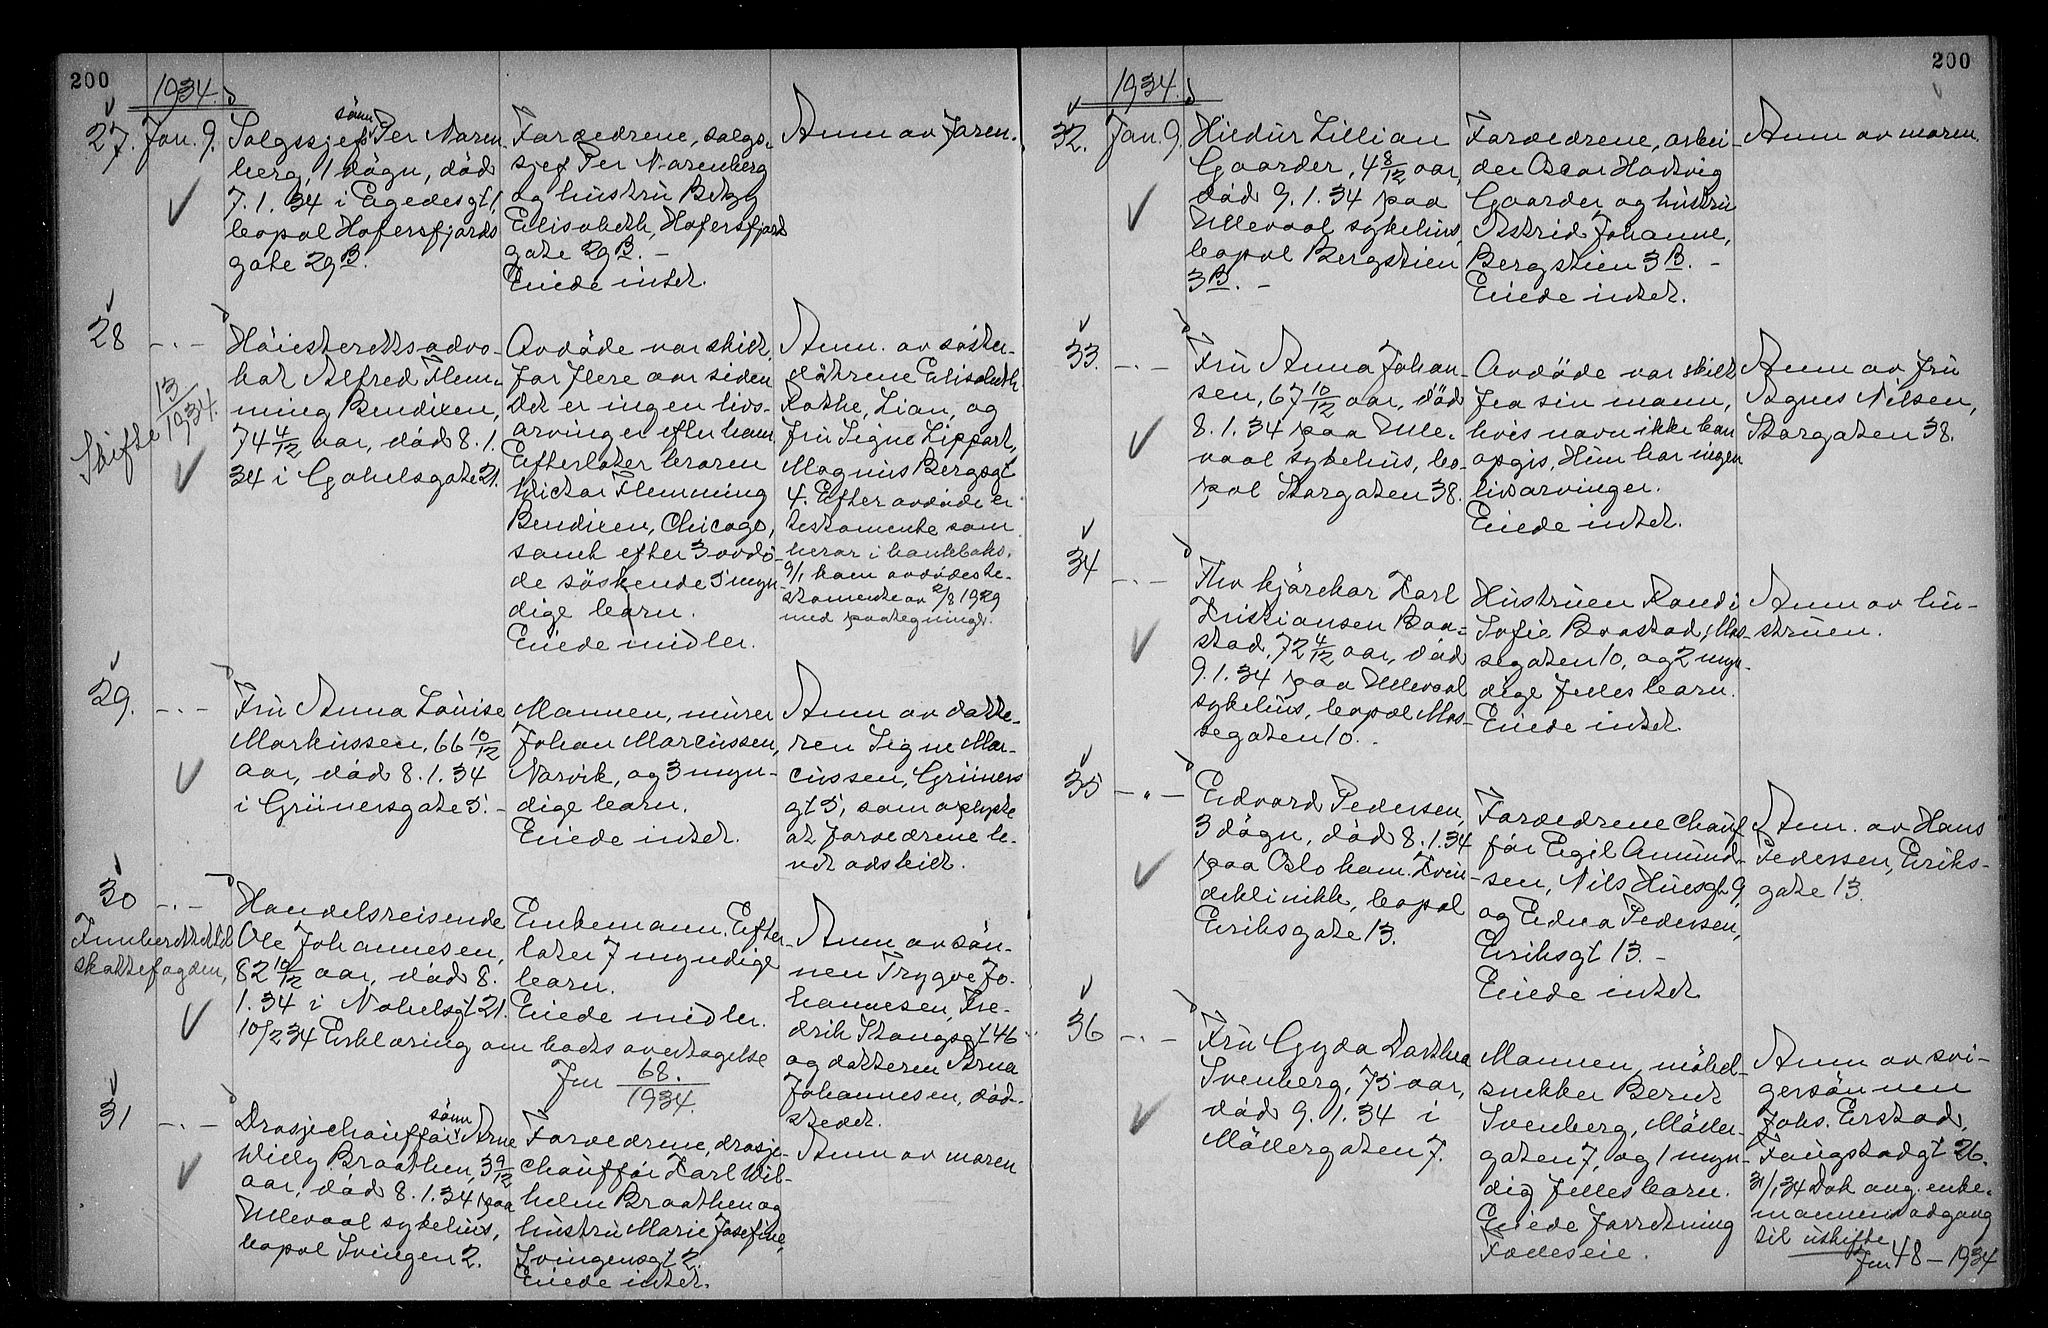 200
1934.
27. Jan. 9. Salgssjef sønn Per Naren
berg, 1 døgn, død
7.1.34 i Egedesgt 1,
bopæl Hafersfjords
gate 29 B.
Foreldrene, salgs-
sjef Per Narenberg
og hustru Betzy
Elisabeth, Hafersfjord
gate 29 B. -
Eiede intet.
Anm av faren.
28 -.- Høiesteretts advo-
kat Alfred Flem-
ming Bendixen,
74 4/12 aar, død 8.1.
34 i Gabelsgate 21.
Skifte 13/1934.
Avdøde var skilt
for flere aar siden
Det er ingen livs-
arvinger efter ham
Efterlater broren
Victor Flemming
Bendixen, Chicago,
samt efter 3 avdø-
de søskende 5 myn
dige barn.
Eiede midler.
Anm. av søster-
døtrene Elisabeth
Rothe, Lian, og
fru Signe Lippert,
Magnus Bergsgt
4. Efter avdøde er
testamente som
beror i bankboks.
9/1 kom avdødes te-
stamente av 2/8 1929
med paategninger.
29. -.- Fru Anna Louise
Markussen, 66 10/12
aar, død 8.1.34
i Grünersgate 5. -
Mannen, murer
Johan Marcussen,
Narvik, og 3 myn-
dige barn.
Eiede intet.
Anm av datte-
ren Signe Mar-
cussen, Grüners
gt 5, som oplyste
at foreldrene le-
vet adskilt.
30 -.- Handelsreisende
Ole Johannesen,
82 10/12 aar, død 8.
1.34 i Nobelsgt 21.
Innberettet til
skattefogden,
Enkemann. Efter-
later 7 myndige
barn.
Eiede midler.
10/2 34 Erklæring om boets overtagelse
Jnr 68./1934.
Anm av søn-
nen Trygve Jo-
hannesen, Fre-
drik Stangsgt 46
og datteren Arna
Johannesen, død-
stedet.
31 -.- Drosjechauffør sønn Arne
Willy Braathen, 3 9/12
aar, død 8.1.34 paa
Ullevaal sykehus,
bopæl Svingen 2.
Foreldrene, drosje-
chauffør Karl Wil-
helm Braathen og
hustru Marie Josefine,
Svingensgt 2.
Eiede intet.
Anm av moren
200
1934.
32. Jan. 9. Hirdur Lillian
Gaarder, 4 8/12 aar,
død 9.1.34 paa
Ullevaal sykehus,
bopæl Bergstien
3 B. -
Foreldrene, arbei-
der Oscar Hartvig
Gaarder og hustru
Astrid Johanne,
Bergstien 3 B. -
Eiede intet.
Anm av moren.
33. -.- Fru Anna Johan-
sen, 67 10/12 aar, død
8.1.34 paa Ulle-
vaal sykehus, bo-
pæl Storgaten 38.
Avdøde var skilt
fra sin mann,
hvis navn ikke kan
opgis. Hun har ingen
livsarvinger.
Eiede intet.
Anm av fru
Agnes Nilsen,
Storgaten 38.
34 -.- Fhv kjørekar Karl
Kristiansen Baa-
stad, 72 4/12 aar, død
9.1.34 paa Ullevaal
sykehus, bopæl Mos-
segaten 10. -
Hustruen Randi
Sofie Baastad, Mos-
segaten 10, og 2 myn-
dige felles barn.
Eiede intet
Anm av hu-
struen.
35 -.- Edvard Pedersen,
3 døgn, død 8.1.34
paa Oslo kom. Kvin-
deklinikk, bopæl
Eriksgate 13.
Foreldrene Chauf
før Egil Amund-
sen, Nils Huusgt 9,
og Edna Pedersen,
Eriksgt 13. -
Eiede intet
Anm. av Hans
Pedersen, Eriks-
gate 13.
36 -.- Fru Gyda Dorthea
Svenberg, 75 aar,
død 9.1.34 i
Møllergaten 7.
Mannen, møbel-
snekker Bernt
Svenberg, Møller-
gaten 7, og 1 myn-
dig felles barn.
Eiede forretning
Fælleseie.
Anm av svi-
gersønnen
Johs. Erstad,
Faugstadgt 26.
31/1 34 Dok ang. enke-
mannens adgang
til uskifte
Jnr 48 - 1934